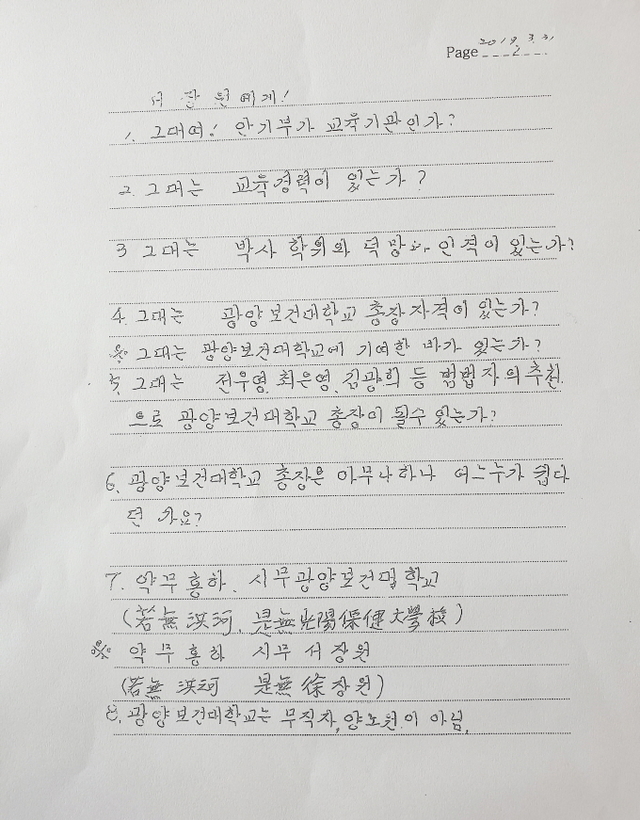 2019. 3. 31
Page 2
서 장 원에게!
1. 그대여! 안기부가 교육기관인가?
2. 그대는 교육경력이 있는가?
3 그대는 박사 학위와 덕망과 인격이 있는가?
4. 그대는 광양보건대학교 총장자격이 있는가?
※ 그대는 광양보건대학교에 기여한 바가 있는가?
5. 그대는 전우영, 최은영, 김광희 등 범법자의 추천
으로 광양보건대학교 총장이 될수 있는가?
6. 광양보건대학교 총장은 아무나하나 어느누가 쉽다
던 가요?
7. 약무홍하, 시무광양보건대학교
(若無洪河, 是無光陽保健大學校)
※ 약무홍하 시무 서장원
(若無洪河 是無徐장원)
8. 광양보건대학교는 무직자, 양노원이 아님.